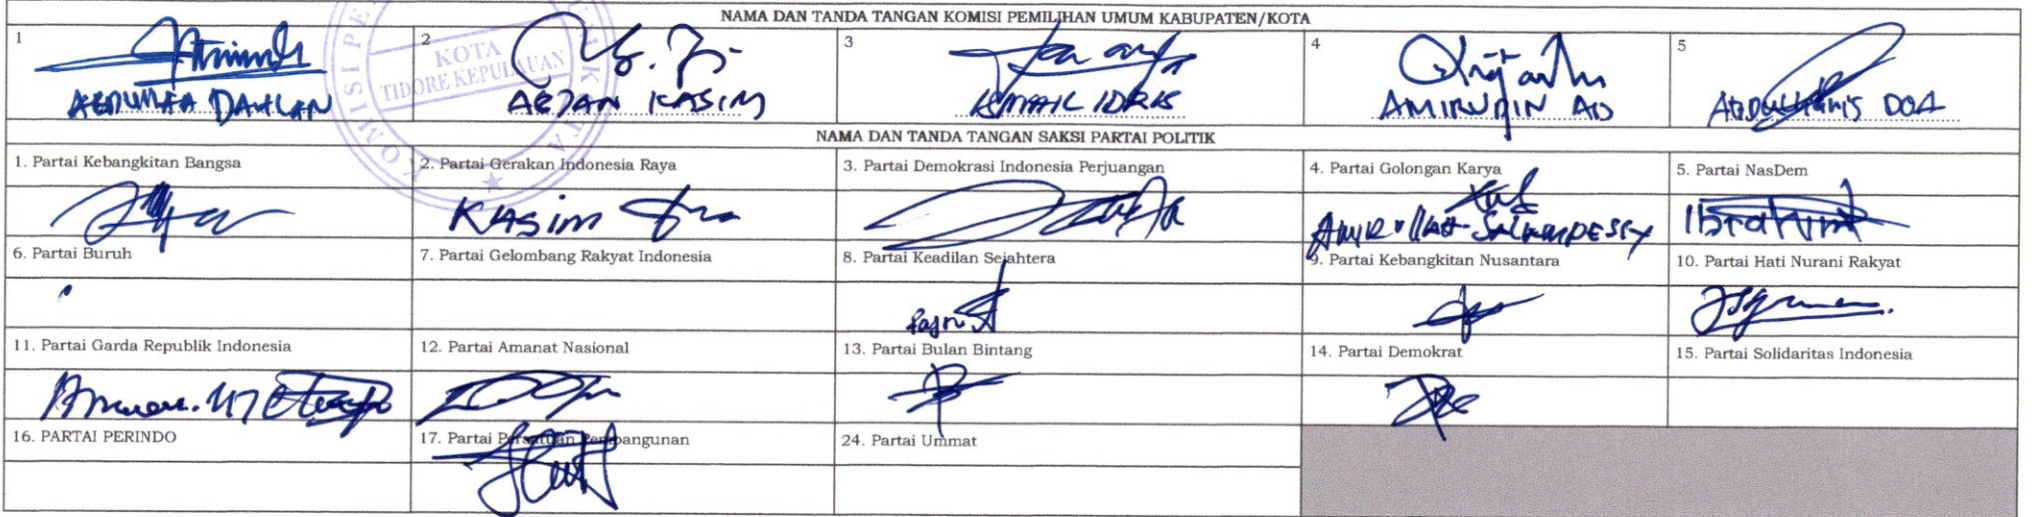 NAMA DAN TANDA TANGAN KOMISI PEMILIHAN UMUM KABUPATEN/KOTA
1 2 3 4 5
KOTA
TIDORE KEPULAUAN
DAHLAN KASIM ISMAIL IDRIS AMIRUDIN DOA
NAMA DAN TANDA TANGAN SAKSI PARTAI POLITIK
1. Partai Kebangkitan Bangsa 2. Partai Gerakan Indonesia Raya 3. Partai Demokrasi Indonesia Perjuangan 4. Partai Golongan Karya 5. Partai NasDem
KASIM
6. Partai Buruh 7. Partai Gelombang Rakyat Indonesia 8. Partai Keadilan Sejahtera 9. Partai Kebangkitan Nusantara 10. Partai Hati Nurani Rakyat
11. Partai Garda Republik Indonesia 12. Partai Amanat Nasional 13. Partai Bulan Bintang 14. Partai Demokrat 15. Partai Solidaritas Indonesia
16. PARTAI PERINDO 17. Partai Persatuan Pembangunan 24. Partai Ummat